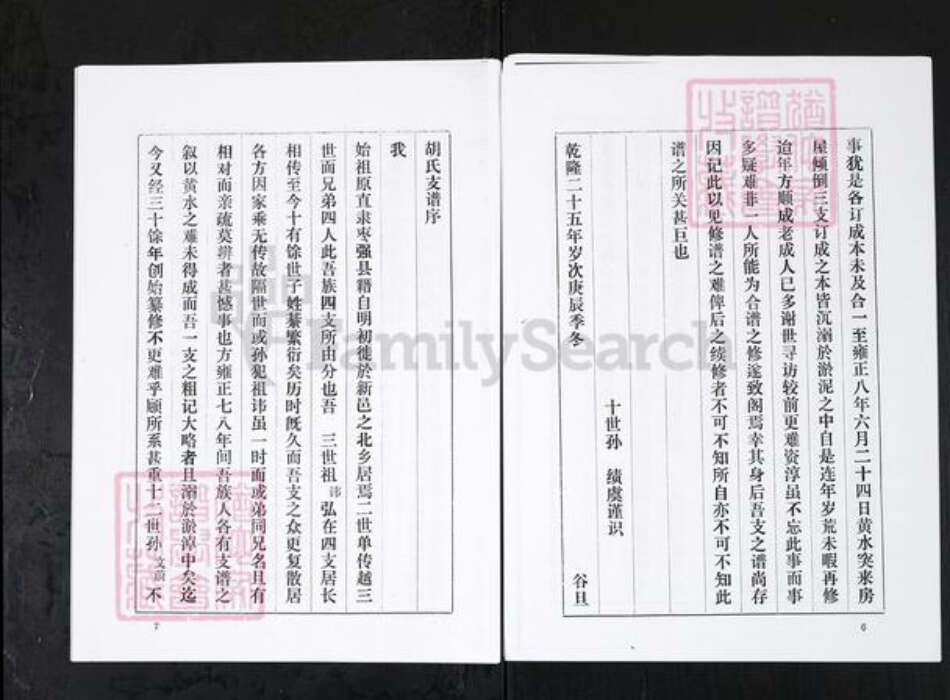 事犹是各订成本未及合一至雍正八年六月二十四日黄水突来房
屋倾倒三支订成之本皆沉溺於淤泥之中自是连年岁荒未暇再修
迨年方顺成老成人已多谢世寻访较前更难资淳虽不忘此事而事
多疑难非一人所能为合谱之修遂致阁焉幸其身后吾支之谱尚存
因记此以见修谱之难俾后之续修者不可不知所自亦不可不知此
谱之所关甚巨也
十世孙 绩虞谨识
乾隆二十五年岁次庚辰季冬 谷旦
6
胡氏支谱序
我
始祖原直隶枣强县籍自明初徙於新邑之北乡居焉二世单传越三
世而兄弟四人此吾族四支所由分也吾 三世祖 讳 弘在四支居长
相传至今十有馀世子姓蕃繁衍矣历时既久而吾支之众更复散居
各方因家乘无传故隔世而或孙犯祖讳虽一时而或弟同兄名且有
相对面亲疏莫辨者甚憾事也方雍正七八年间吾族人各有支谱之
叙以黄水之难未得成而吾一支之粗记大略者且溺於淤淖中矣迄
今又经三十馀年创始纂修不更难乎顾所系甚重十二世孙 文 不
7
FamilySearch